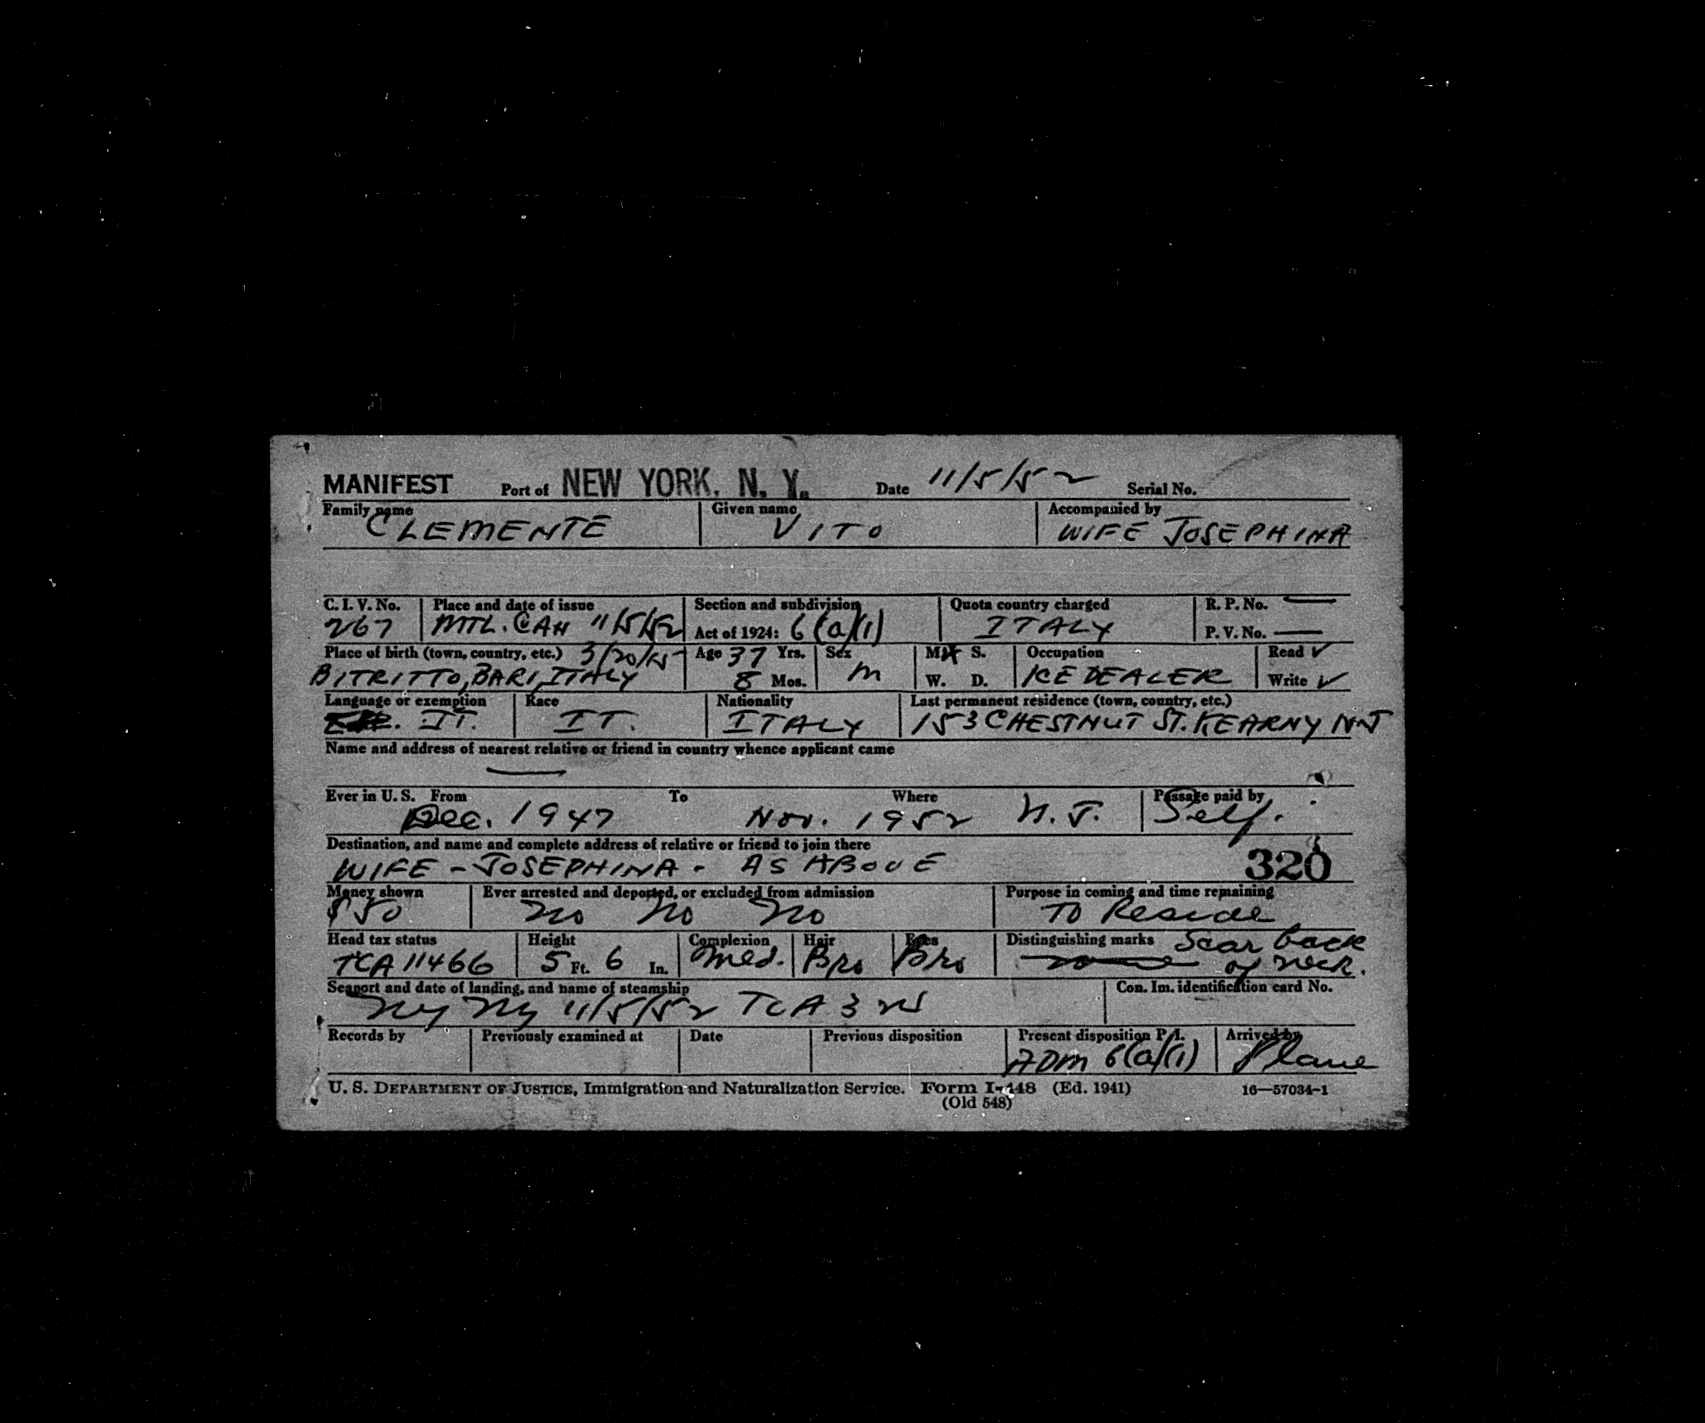 MANIFEST Port of NEW YORK, N. Y. Date 11/5/52 Serial No.
Family name Given name Accompanied by
CLEMENTE VITO WIFE JOSEPHINA
C. I. V. No. Place and date of issue Section and subdivision Quota country charged R. P. No. —
267 MTL. CAN 11/5/52 Act of 1924: 6(a)(1) ITALY P. V. No. —
Place of birth (town, country, etc.) 3/20/15 Age 37 Yrs. Sex M S. Occupation Read ✓
BITRITTO, BARI, ITALY 8 Mos. M W. D. ICE DEALER Write ✓
Language or exemption Race Nationality Last permanent residence (town, country, etc.)
IT. IT. ITALY 153 CHESTNUT ST. KEARNY NJ
Name and address of nearest relative or friend in country whence applicant came
—
Ever in U. S. From To Where Passage paid by
Dec. 1947 Nov. 1952 N. J. Self.
Destination, and name and complete address of relative or friend to join there
WIFE - JOSEPHINA - AS ABOVE 320
Money shown Ever arrested and deported, or excluded from admission Purpose in coming and time remaining
$50 No No No To Reside
Head tax status Height Complexion Hair Eyes Distinguishing marks Scar back
TCA 11466 5 Ft. 6 In. Med. Bro Bro of neck.
Seaport and date of landing, and name of steamship Con. Im. identification card No.
Ny Ny 11/5/52 TCA
Records by Previously examined at Date Previous disposition Present disposition P. I. Arrived by
ADM 6(a)(1) Plane
U. S. DEPARTMENT OF JUSTICE, Immigration and Naturalization Service. Form I-448 (Ed. 1941) 16—57034-1
(Old 548)